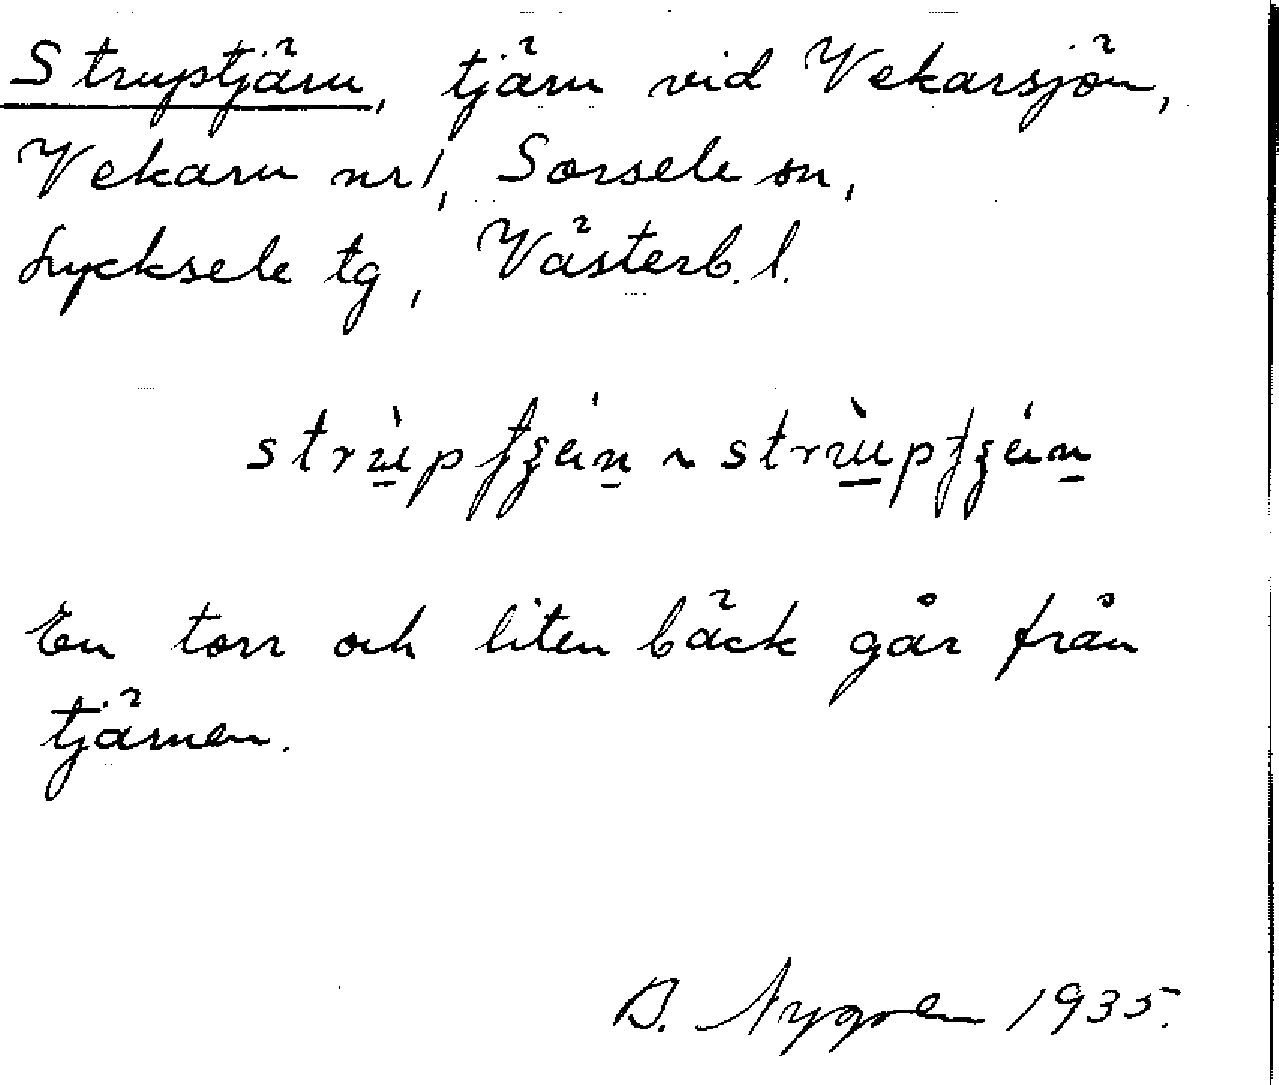 Struptjärn, tjärn vid Vekarsjön,
Vekarn nr 1, Sorsele sn,
Lycksele tg, Västerb. l.
En torr och liten bäck går från
tjärnen.
Nygren 1935.